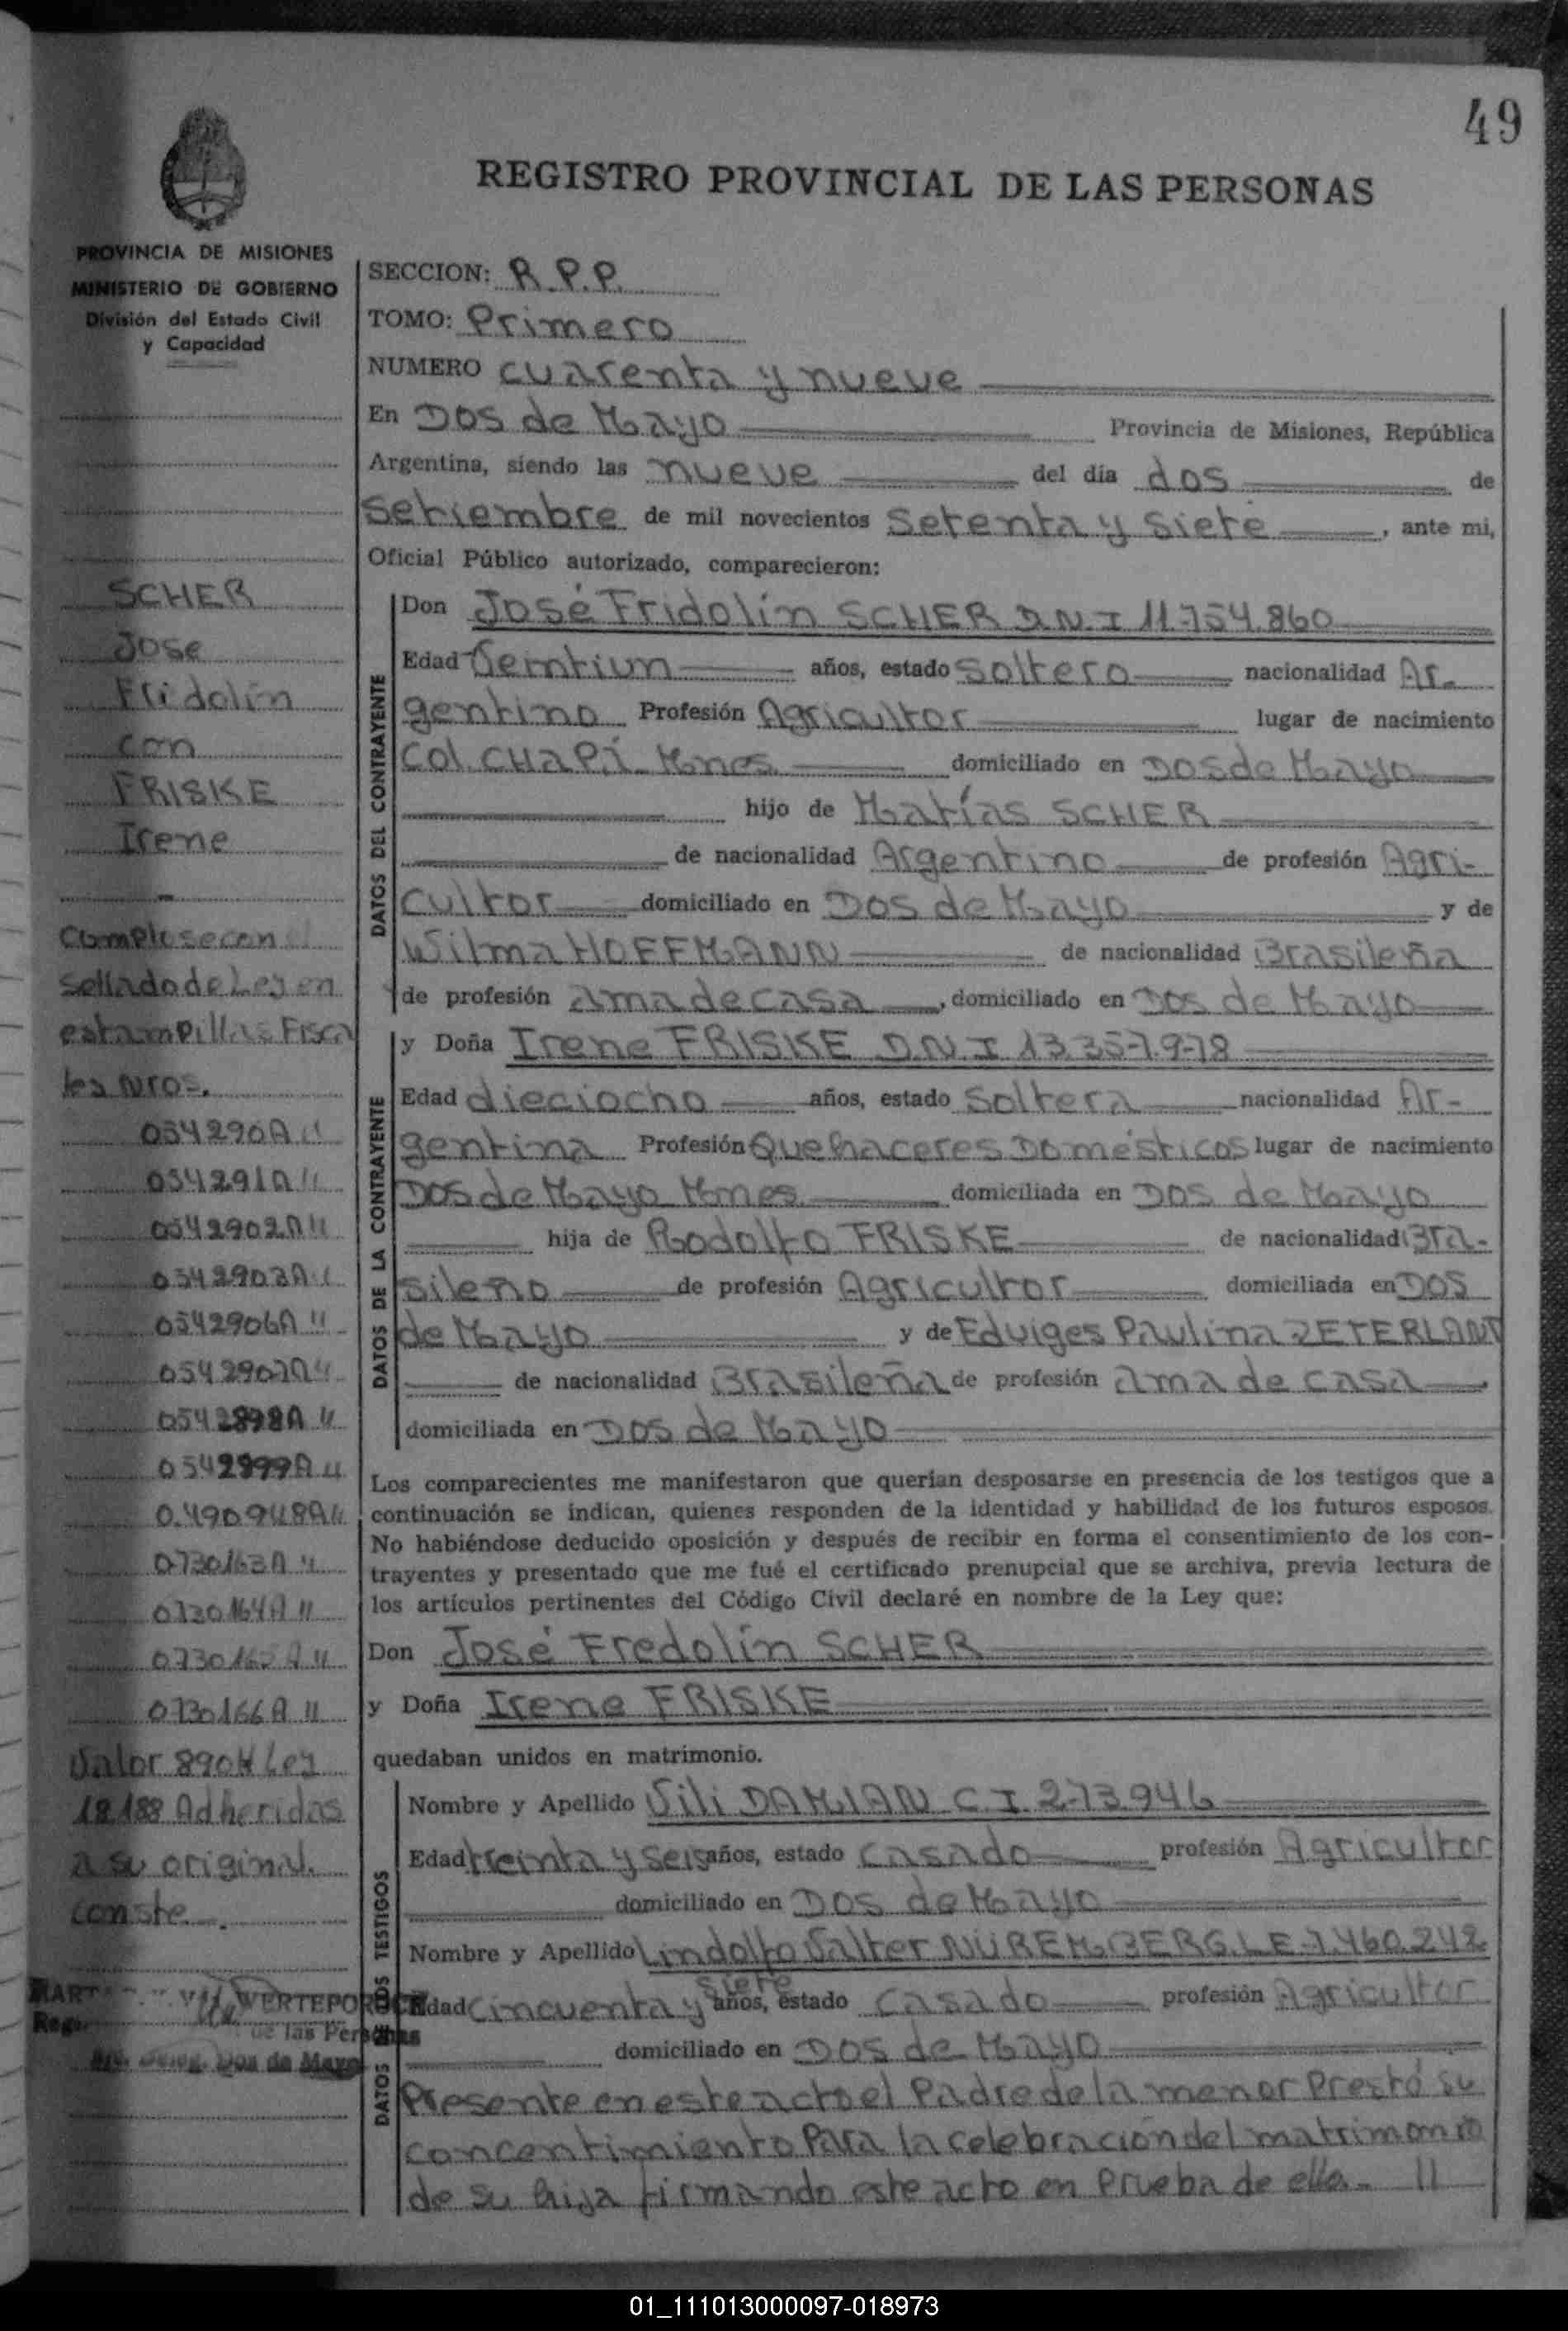 49
REGISTRO PROVINCIAL DE LAS PERSONAS
PROVINCIA DE MISIONES
MINISTERIO DE GOBIERNO
División del Estado Civil
y Capacidad
SCHER
Jose
Fridolín
con
FRISKE
Irene
-
Complose con el
Sellado de Ley en
estampillas Fisca
les nros.
054290A "
054291A "
0542902A "
0542903A "
0542906A "
0542907A "
0542898A "
0542999A "
0.490948A "
0730163A "
0730164A "
0730165A "
0730166A "
Valor 890 Ley
18.188 Adheridas
a su original.
conste.
WERTEPOROCH
de las Personas
Dos de Mayo
SECCION: R.P.P.
TOMO: Primero
NUMERO cuarenta y nueve
En Dos de Mayo Provincia de Misiones, República
Argentina, siendo las nueve del día dos de
Setiembre de mil novecientos Setenta y Siete, ante mi,
Oficial Público autorizado, comparecieron:
DATOS DEL CONTRAYENTE
Don José Fridolín SCHER D.N.I 11.754.860
Edad Veintiun años, estado Soltero nacionalidad Ar-
gentino Profesión Agricultor lugar de nacimiento
Col. CHAPÁ Mnes domiciliado en Dos de Mayo
hijo de Matías SCHER
de nacionalidad Argentino de profesión Agri-
cultor domiciliado en Dos de Mayo y de
Wilma HOFFMANN de nacionalidad Brasileña
de profesión ama de casa, domiciliado en Dos de Mayo
DATOS DE LA CONTRAYENTE
y Doña Irene FRISKE D.N.I 13.357.978
Edad dieciocho años, estado Soltera nacionalidad Ar-
gentina Profesión Quehaceres Domésticos lugar de nacimiento
Dos de Mayo Mnes domiciliada en Dos de Mayo
hija de Rodolfo FRISKE de nacionalidad Bra-
sileño de profesión Agricultor domiciliada en Dos
de Mayo y de Eduiges Paulina ZETERLANT
de nacionalidad Brasileña de profesión ama de casa
domiciliada en Dos de Mayo
Los comparecientes me manifestaron que querían desposarse en presencia de los testigos que a
continuación se indican, quienes responden de la identidad y habilidad de los futuros esposos.
No habiéndose deducido oposición y después de recibir en forma el consentimiento de los con-
trayentes y presentado que me fué el certificado prenupcial que se archiva, previa lectura de
los artículos pertinentes del Código Civil declaré en nombre de la Ley que:
Don José Fredolín SCHER
y Doña Irene FRISKE
quedaban unidos en matrimonio.
DATOS TESTIGOS
Nombre y Apellido Vili DAMIAN C.I. 273.946
Edad treinta y seis años, estado casado profesión Agricultor
domiciliado en Dos de Mayo
Nombre y Apellido Lindolfo Valter NÜREMBERG. L.E. 7.460.242
Edad cincuenta y siete años, estado casado profesión Agricultor
domiciliado en Dos de Mayo
Presente en este acto el Padre de la menor Prestó su
concentimiento Para la celebración del matrimonio
de su hija firmando este acto en Prueba de ello. "
01_111013000097-018973